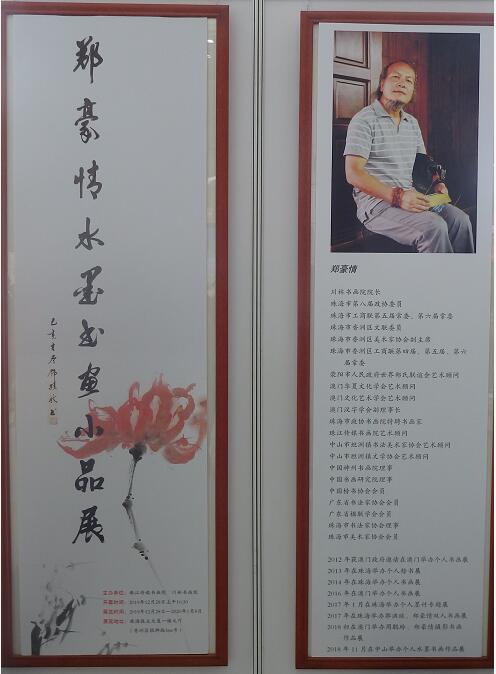 郑豪情水墨书画小品展
主办单位：珠江传媒书画院 川林书画院
开幕时间：2019年12月28日上午10:30
郑豪情
川林书画院院长
珠海市第八届政协委员
珠海市工商联第五届常委、第六届常委
珠海市香洲区文联委员
珠海市香洲区美术家协会副主席
珠海市香洲区工商联第四届、第五届、第六
届常委
荥阳市人民政府世界郑氏联谊会艺术顾问
澳门华夏文化学会艺术顾问
澳门文化艺术学会艺术顾问
澳门汉字学会副理事长
珠海市政协书画院特聘书画家
珠江传媒书画院艺术顾问
中山市坦洲镇书法美术家协会艺术顾问
中山市坦洲镇文学协会艺术顾问
中国神州书画院理事
中国书画研究院理事
中国楷书协会会员
广东省书法家协会会员
广东省楹联学会会员
珠海市书法家协会理事
珠海市美术家协会会员
2012 年获澳门政府邀请在澳门举办个人书画展
2013 年在珠海举办个人楷书展
2014 年在珠海举办个人书画展
2016 年在澳门举办个人书画展
2017 年 1 月在珠海举办个人墨竹专题展
作品展
2018 年 11 月在中山举办个人水墨书画展